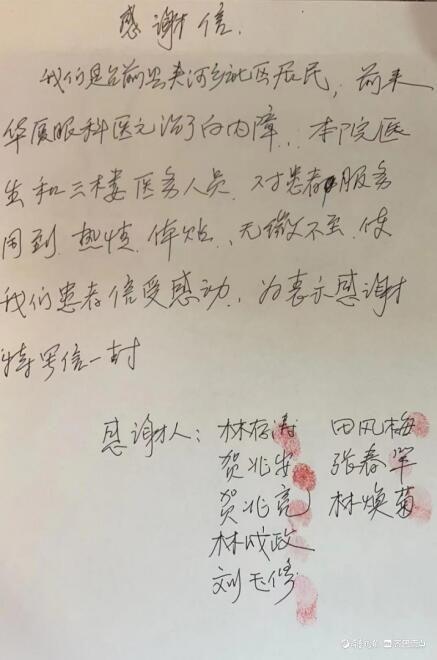 感谢信.
我们是台前县夹河乡社区居民, 前来
华厦眼科医元治了白内障, 本院医
生和三楼医务人员, 对患者服务
周到. 热情. 体贴、无微不至, 使
我们患者倍受感动, 为表示感谢
特写信一封
感谢人: 林存涛 田风梅
贺兆安 张春罕
贺兆亮 林焕菊
林成政
刘玉修